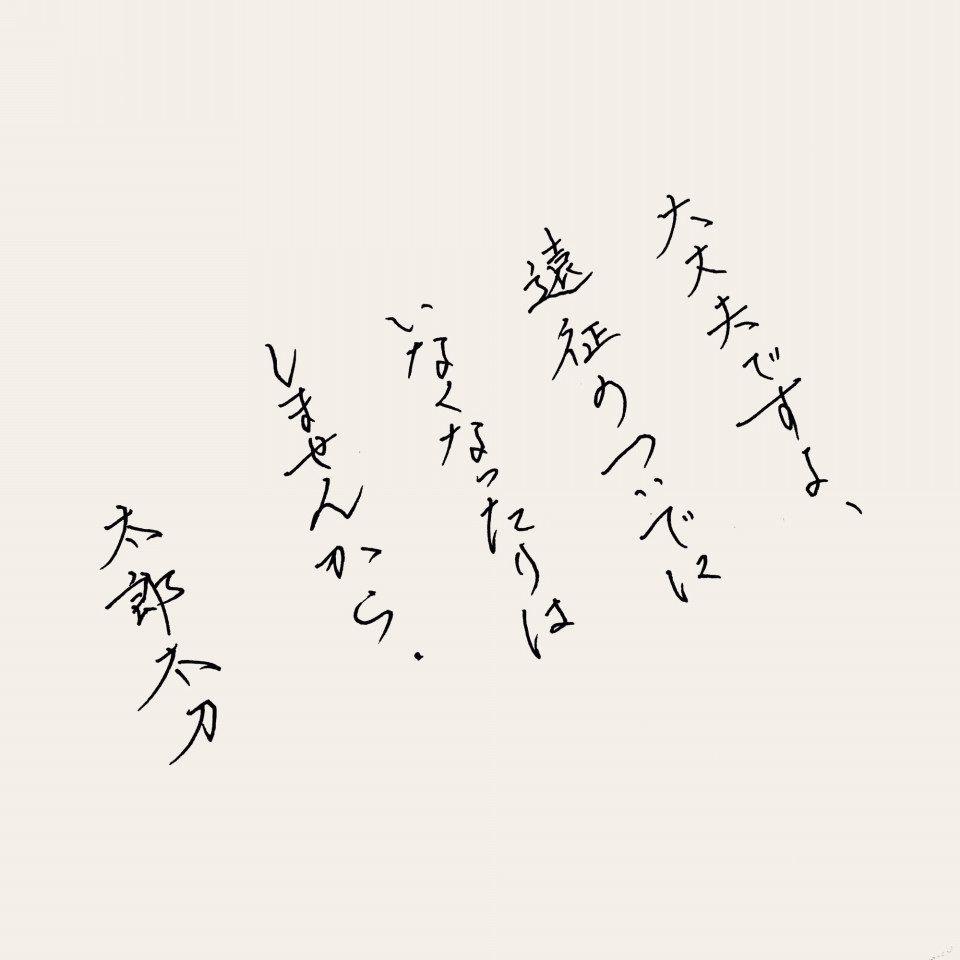 大丈夫ですよ、
遠征のついでに
いなくなったりは
しませんから.
太郎太刀